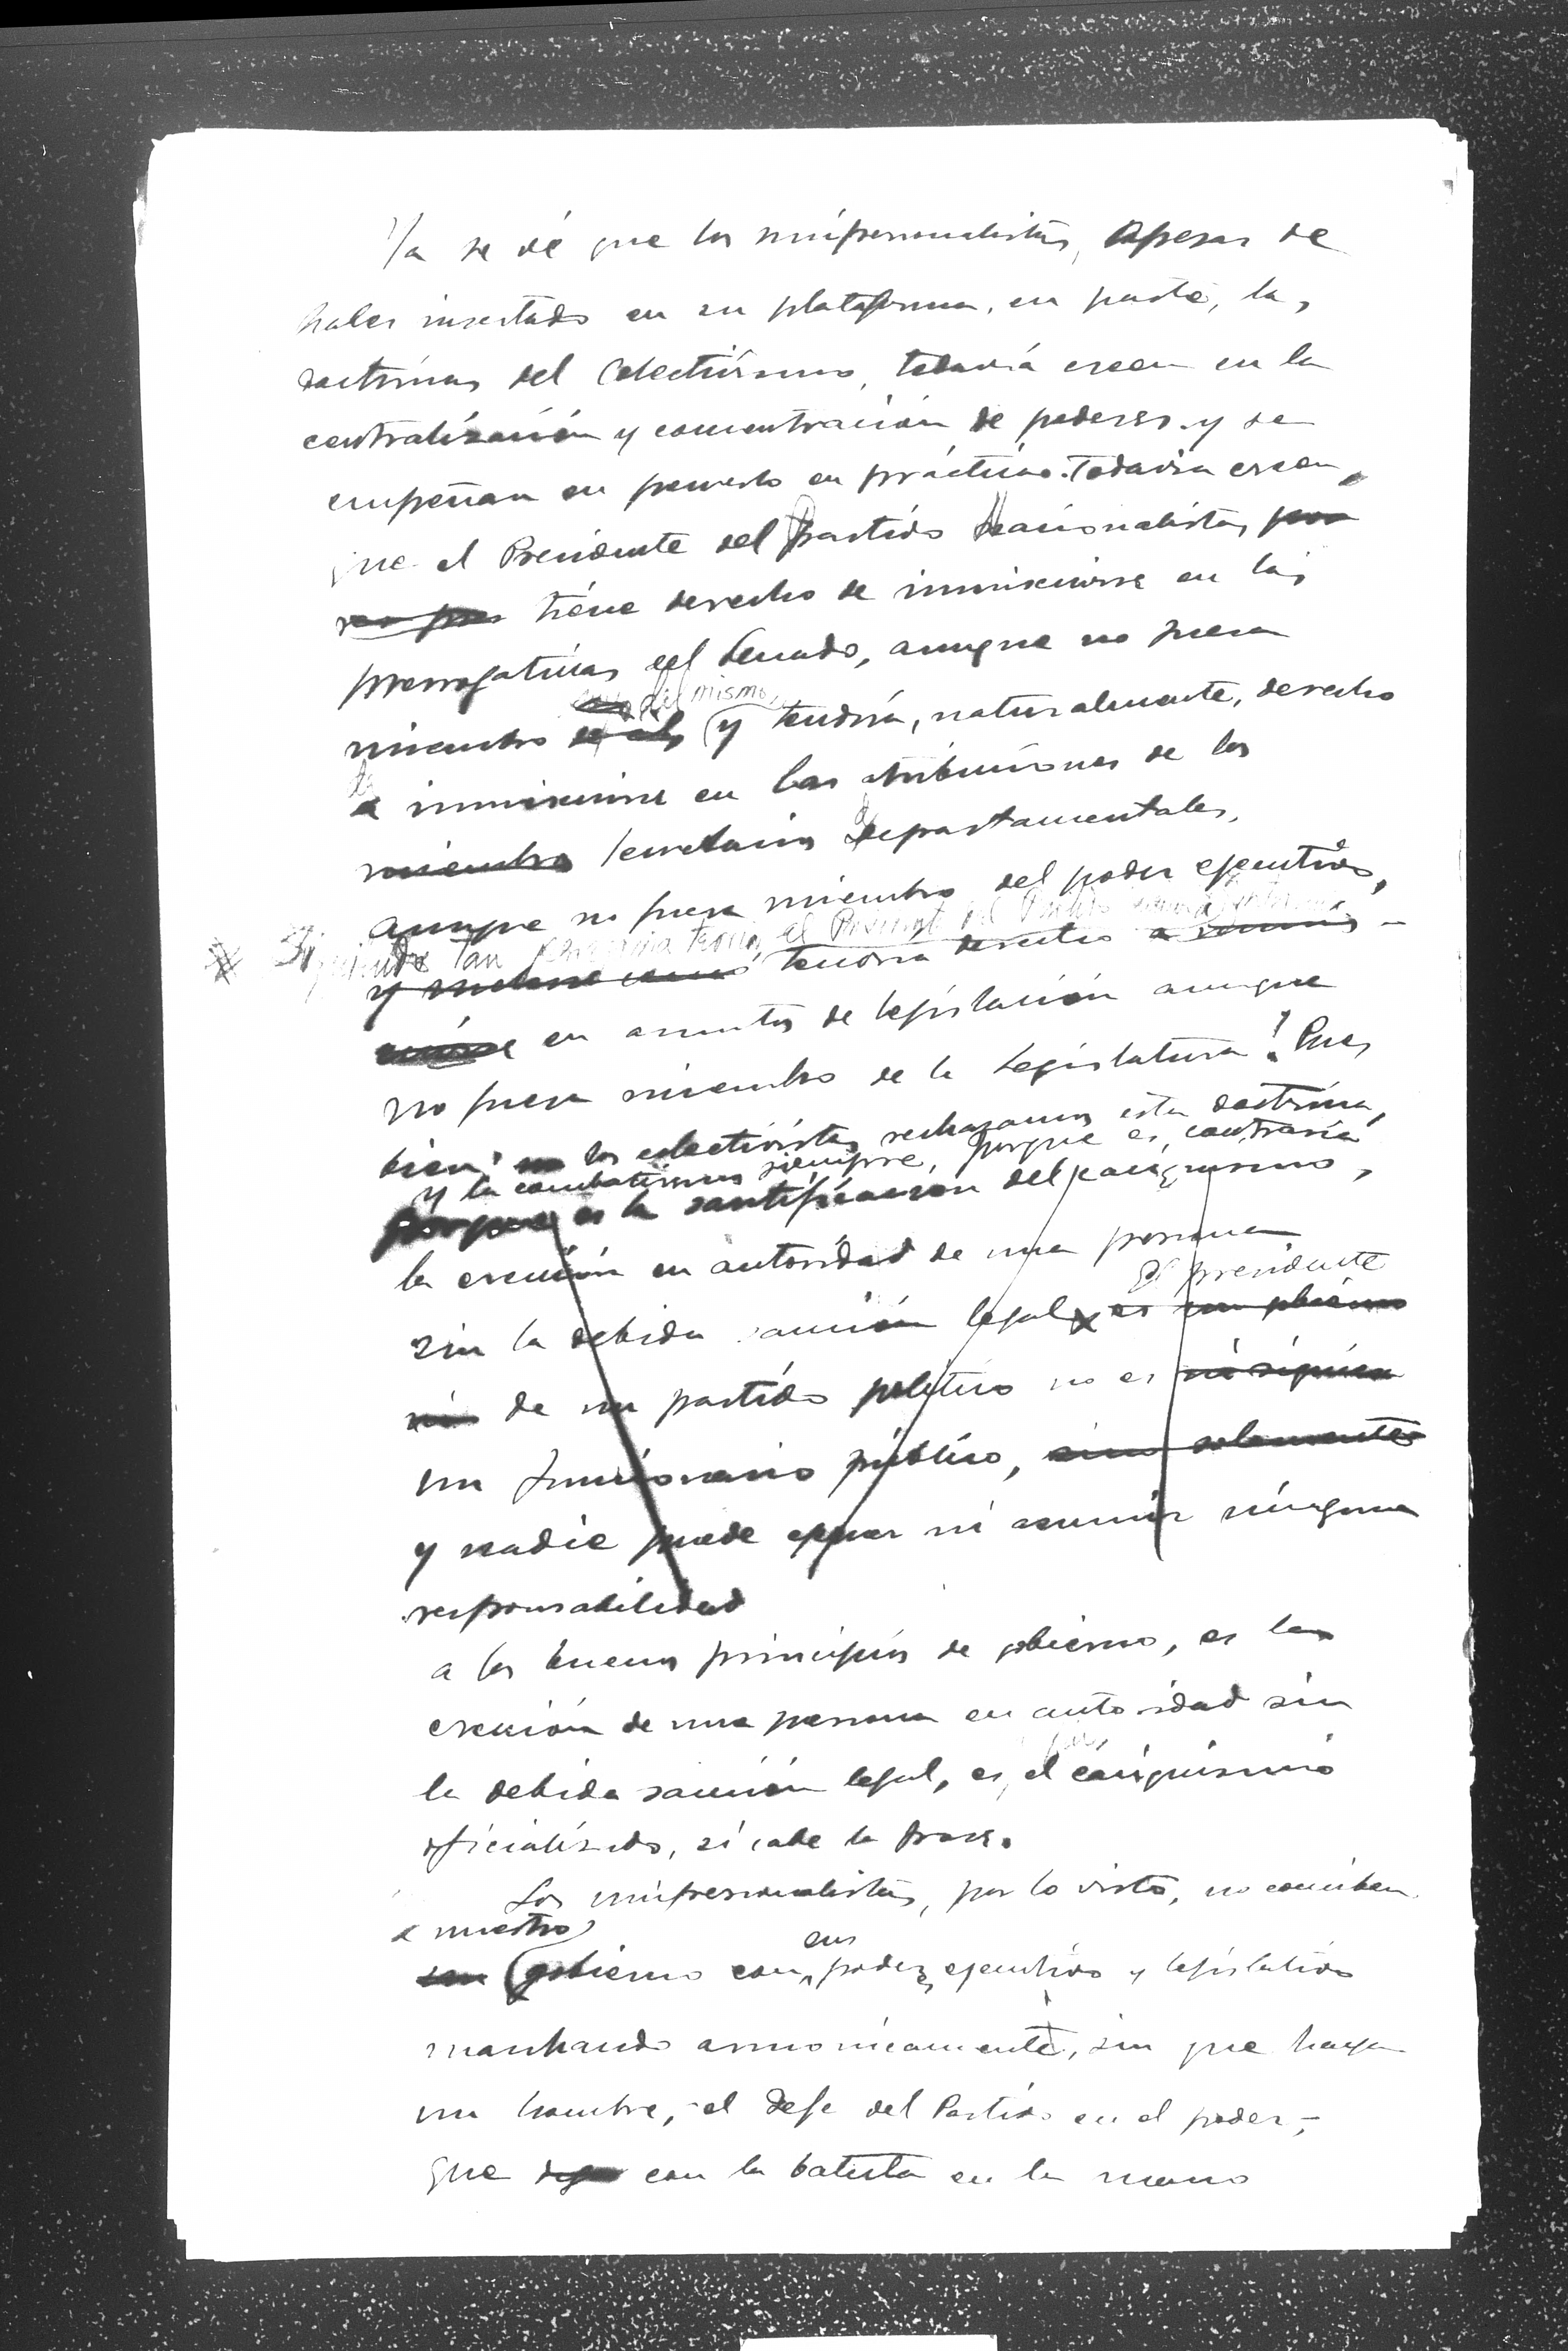 Ya se vé que los unipersonalistas, apesar de
haber insertado en su plataforma, en parte, las
doctrinas del Colectivismo, todavía creen en la
centralización y concentración de poderes y se
empeñan en ponerlo en práctica. Todavia creen,
que el Presidente del Partido Nacionalista, por
tiene derecho de inmiscuirse en las
prerrogativas del Senado, aunque no fuera
del mismo,
miembro y tendría, naturalmente, derecho
a inmiscuirse en las atribuciones de los
miembros Secretarios Departamentales,
aunque no fuera miembro del poder ejecutivo,
Siguiendo tan peregrina teoria, el Presidente del Partido
y tendria derecho a
en asuntos de legislación aunque
no fuera miembro de la Legislatura! Pues
bien: los colectivistas rechazamos esta doctrina,
y la combatiremos siempre, porque es contraria
porque es la santificación del caciquismo,
la erección en autoridad de una persona
El presidente
sin la debida sanción legal es
ni de un partido político no es ni siquiera
un funcionario público, sino solamente
y nadie puede ni asumir ninguna
responsabilidad
a los buenos principios de gobierno, es la
erección de una persona en autoridad sin
la debida sanción legal, es, pues, el caciquismo
oficializado, si cabe la frase.
Los unipersonalistas, por lo visto, no conciben
a nuestro
sus
un gobierno con poderes ejecutivo y legislativo
marchando armonicamente, sin que haya
un hombre, - el Jefe del Partido en el poder, -
que con la batuta en la mano